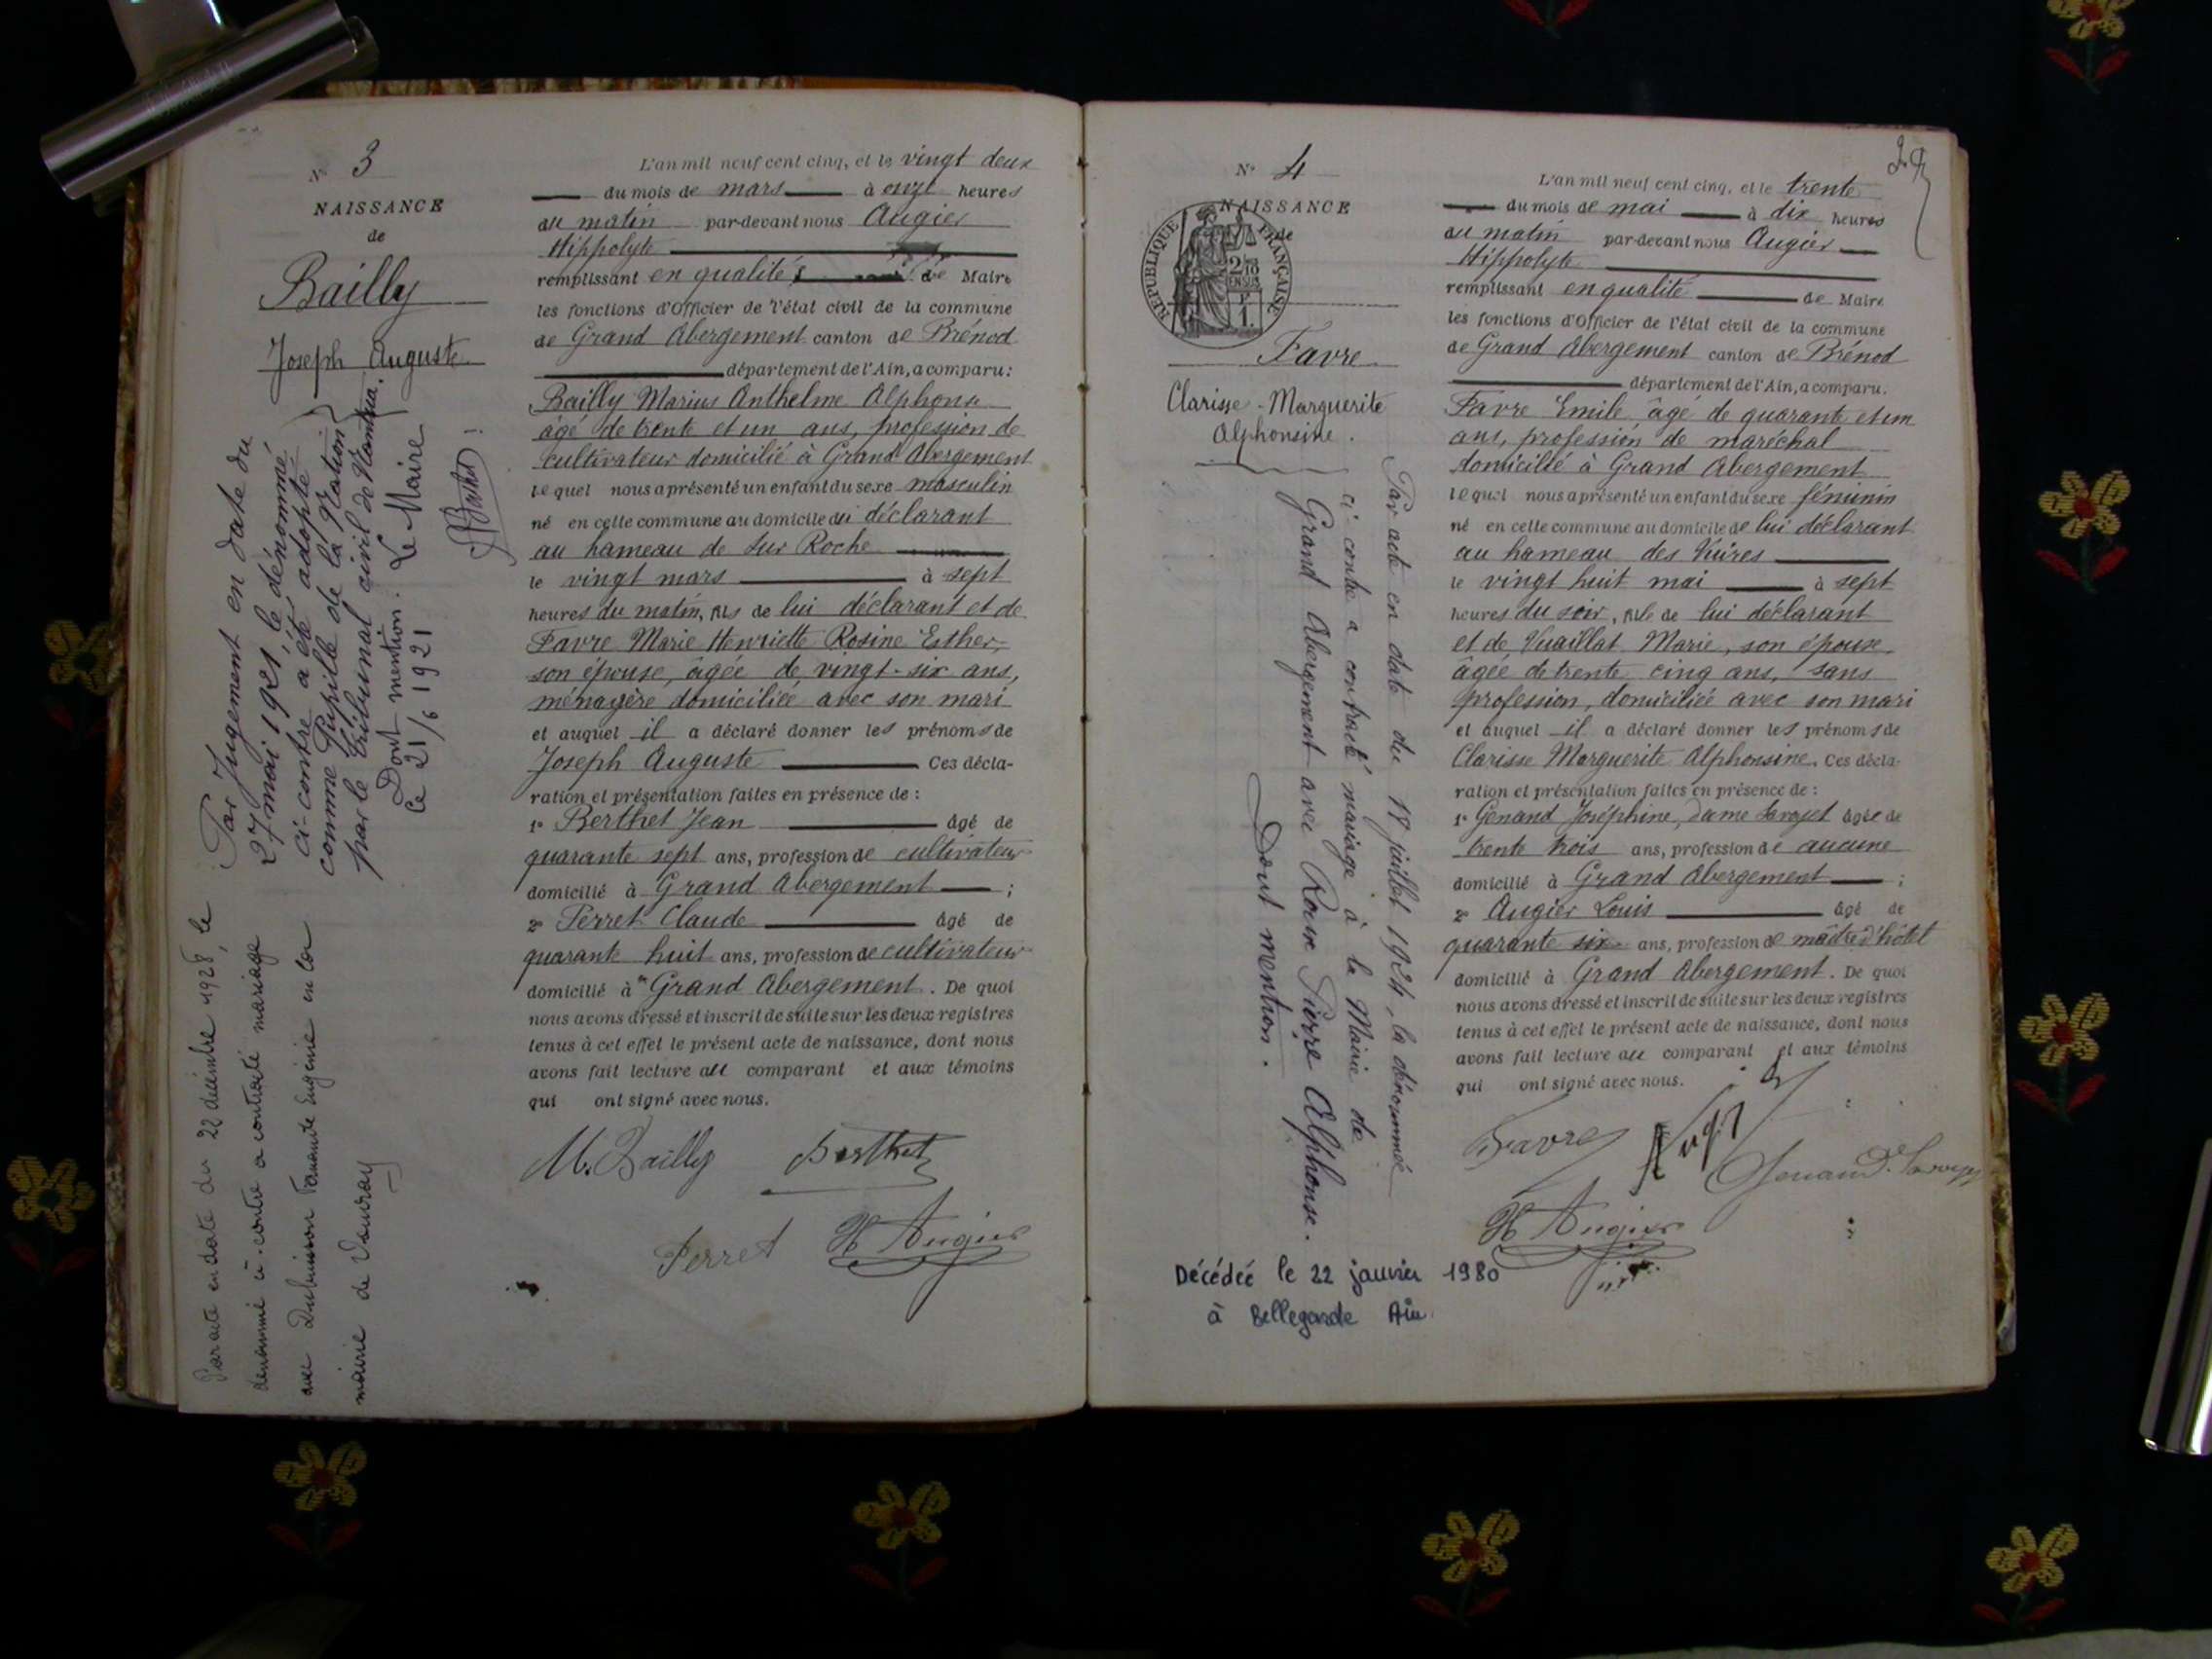 N° 3
NAISSANCE
de
Bailly
Joseph Auguste
Par Jugement en date du
27 mai 1921, le dénommé
ci-contre a été adopté
comme Pupille de la Nation
par le Tribunal civil de Nantua.
Dont mention. Le Maire
Le 21/6 1921
Berthet
Par acte en date du 22 décembre 1928, le
dénommé ci-contre a contracté mariage
avec Eugénie en la
mairie de
L'an mil neuf cent cinq, et le vingt deux
du mois de mars à onze heures
du matin par-devant nous Augier
Hippolyte
remplissant en qualité de Maire
les fonctions d'Officier de l'état civil de la commune
de Grand Abergement canton de Brénod
département de l'Ain, a comparu:
Bailly Marius Anthelme Alphonse
âgé de trente et un ans, profession de
cultivateur domicilié à Grand Abergement
lequel nous a présenté un enfant du sexe masculin
né en cette commune au domicile du déclarant
au hameau de Sur Roche
le vingt mars à sept
heures du matin, fils de lui déclarant et de
Favre Marie Henriette Rosine Esther,
son épouse, âgée de vingt-six ans,
ménagère domiciliée avec son mari
et auquel il a déclaré donner les prénoms de
Joseph Auguste Ces décla-
ration et présentation faites en présence de :
1° Berthet Jean âgé de
quarante sept ans, profession de cultivateur
domicilié à Grand Abergement ;
2° Perret Claude âgé de
quarante huit ans, profession de cultivateur
domicilié à Grand Abergement. De quoi
nous avons dressé et inscrit de suite sur les deux registres
tenus à cet effet le présent acte de naissance, dont nous
avons fait lecture au comparant et aux témoins
qui ont signé avec nous.
M. Bailly Berthet
Perret H Augier
N° 4
NAISSANCE
de
RÉPUBLIQUE FRANÇAISE
2/10 EN SUS
1
Favre
Clarisse-Marguerite
Alphonsine.
Par acte en date du 17 juillet 1924, la dénommée
ci contre a contracté mariage à la Mairie de
Grand Abergement avec Pierre Alphonse.
Dont mention.
Décédée le 22 janvier 1980
à Bellegarde Ain.
L'an mil neuf cent cinq, et le trente
du mois de mai à dix heures
du matin par-devant nous Augier
Hippolyte
remplissant en qualité de Maire
les fonctions d'Officier de l'état civil de la commune
de Grand Abergement canton de Brénod
département de l'Ain, a comparu.
Favre Emile âgé de quarante et un
ans, profession de maréchal
domicilié à Grand Abergement
lequel nous a présenté un enfant du sexe féminin
né en cette commune au domicile de lui déclarant
au hameau des
le vingt huit mai à sept
heures du soir, fille de lui déclarant
et de Vuaillat Marie, son épouse
âgée de trente cinq ans, sans
profession, domiciliée avec son mari
et auquel il a déclaré donner les prénoms de
Clarisse Marguerite Alphonsine. Ces décla-
ration et présentation faites en présence de :
1° Genand Joséphine, dame âgée de
trente trois ans, profession de aucune
domicilié à Grand Abergement ;
2° Augier Louis âgé de
quarante six ans, profession de maître d'hôtel
domicilié à Grand Abergement. De quoi
nous avons dressé et inscrit de suite sur les deux registres
tenus à cet effet le présent acte de naissance, dont nous
avons fait lecture au comparant et aux témoins
qui ont signé avec nous.
Favre
H Augier